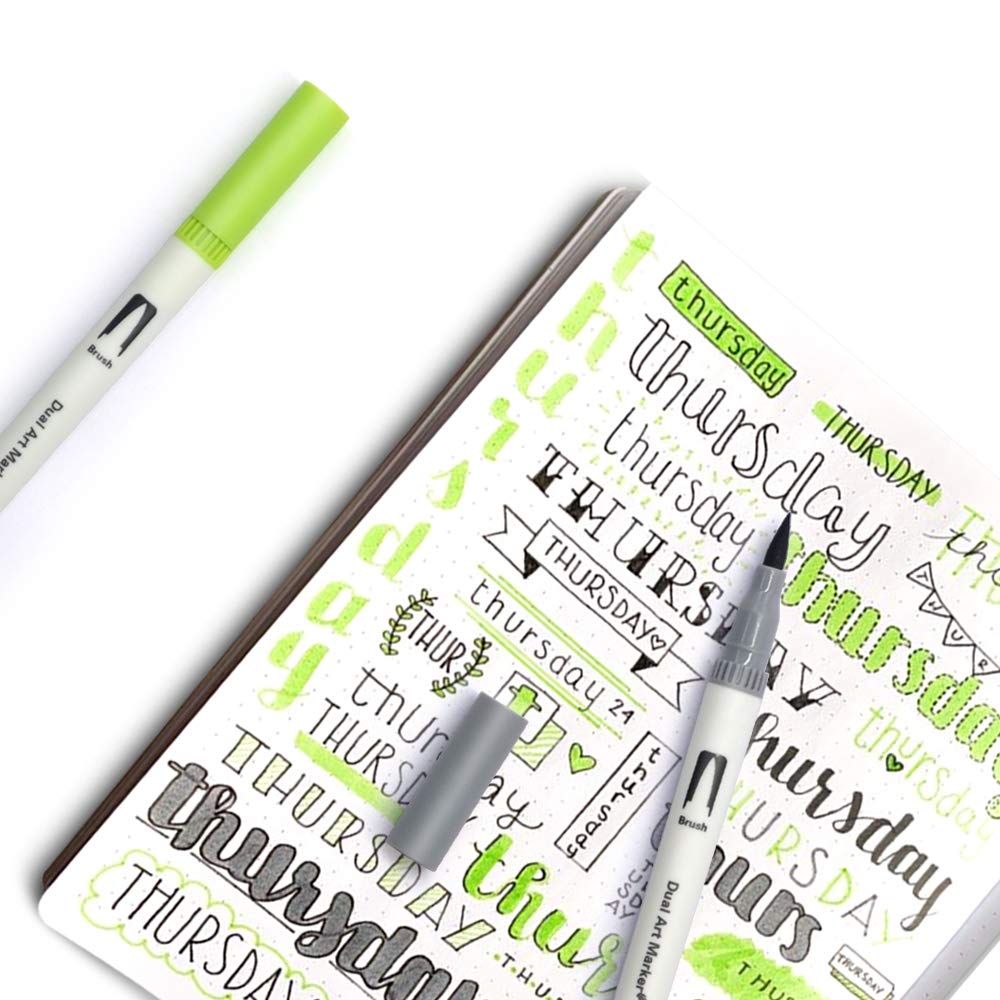 Brush
Dual Art Mar
thursday
thursday
thursday
THURSDAY
thursday
THURSDAY
THURSDAY♡
thursday 24
THUR
thursday
THUR
thursday
thursday
THURSDAY
thursday
thursday
THURSDAY
thurs
THURSDAY
thursday
THURSDAY
thur
THU
THURSDAY
T·H·U
Brush
Dual Art Marker